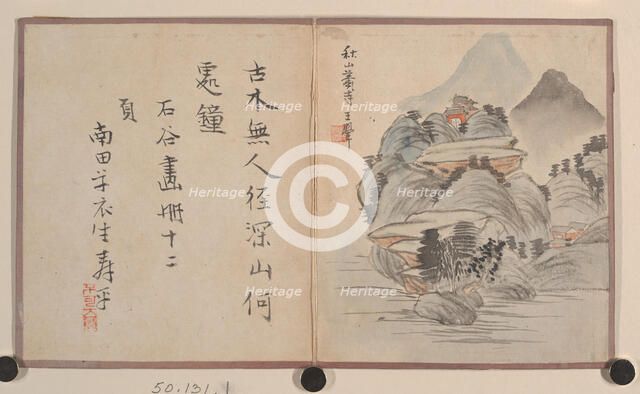 秋山蕭寺 王翬
古木無人径深山何
處鐘
石谷畫冊十二
頁
南田草衣生壽平
50.131.1
Heritage
Heritage
Heritage
Heritage
Heritage
Heritage
Heritage
Heritage
Heritage
Heritage
C